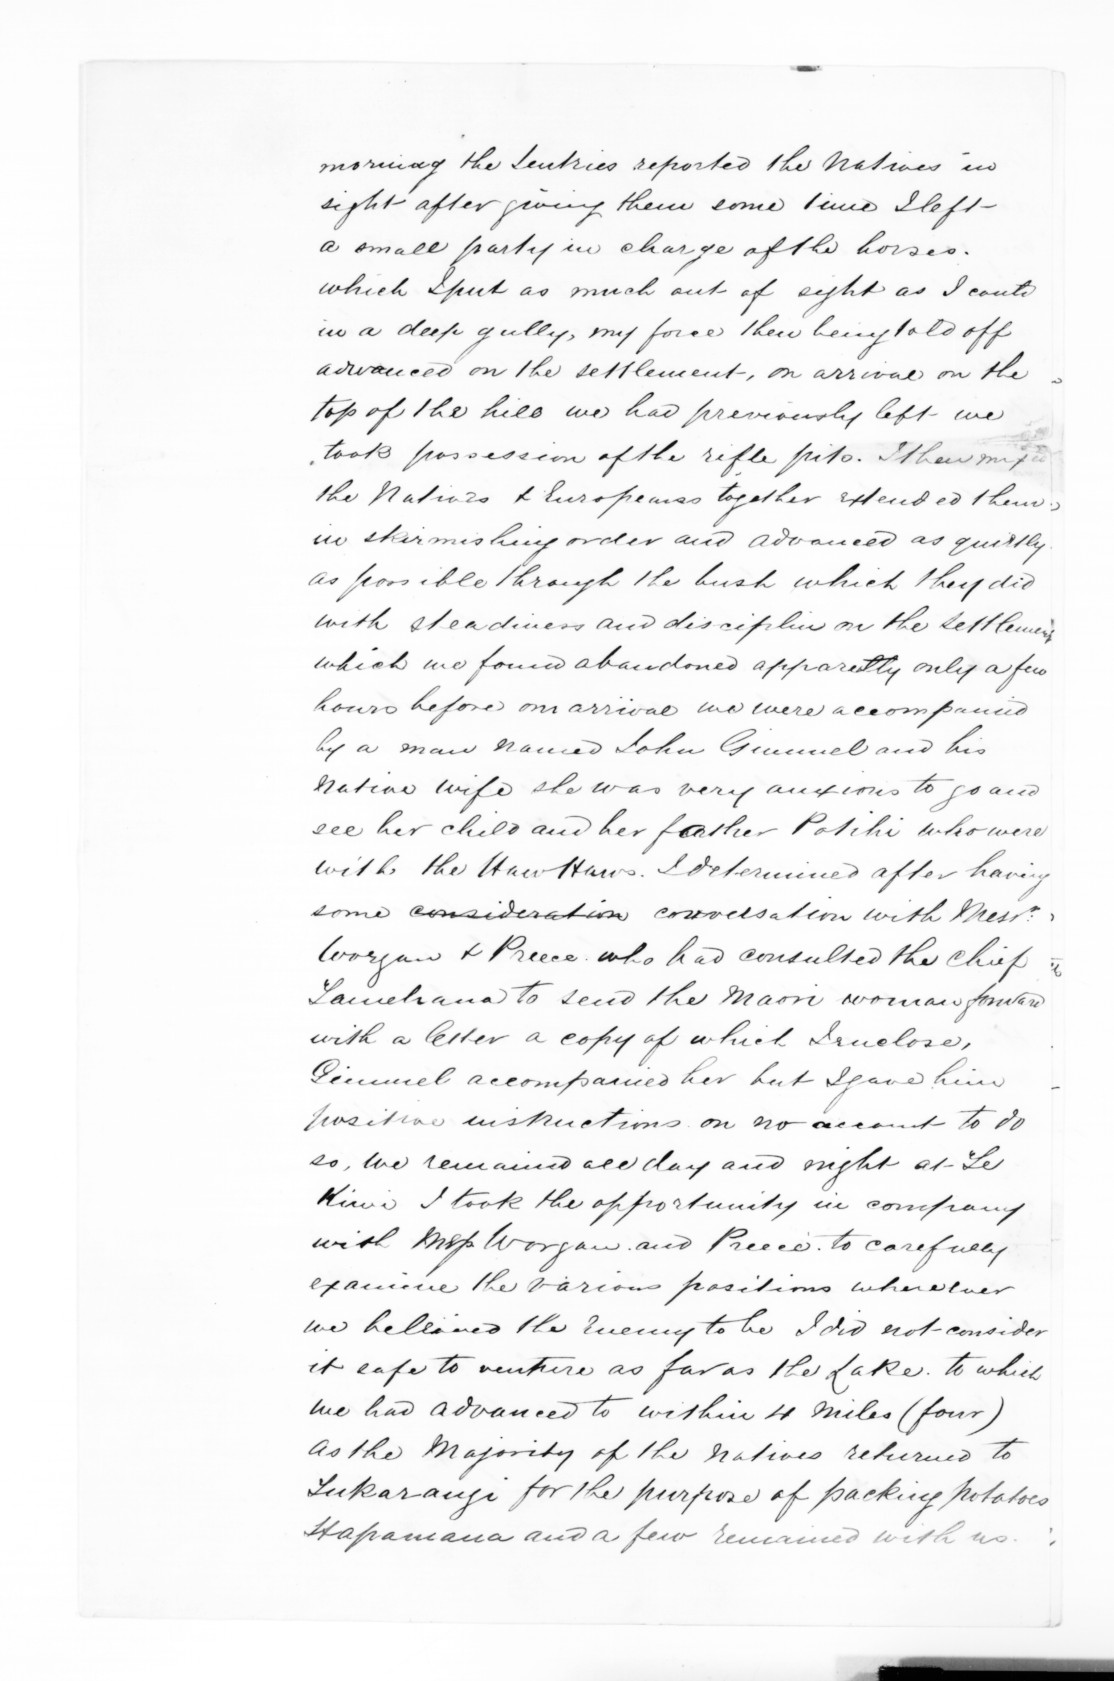 morning the Sentries reported the Natives in
sight after giving them some time I left
a small party in charge of the horses.
which I put as much out of sight as I could
in a deep gully, my force then being told off
advanced on the settlement, on arrival on the
top of the hill we had previously left we
took possession of the rifle pits. I then mixed
the Natives & Europeans together extended them
in skirmishing order and advanced as quietly
as possible through the bush which they did
with steadiness and disciplin on the settlement
which we found abandoned apparetly only a few
hours before our arrival we were accompanied
by a man named John Gimmel and his
Native wife she was very anxious to go and
see her child and her father Potihi who were
with the Haw Haws. I determined after having
some consideration conversation with Messrs
Worgan & Preece. who had consulted the Chief
Tamehana to send the Maori woman forward
with a letter a copy of which I enclose,
Gimmel accompanied her but I gave him
positive instructions on no account to do
so, we remained all day and night at Te
Kiwi I took the opportunity in company
with Worgan. and Preece. to carefully
examine the various positions wherever
we believed the Enemy to be I did not consider
it safe to venture as far as the Lake. to which
we had advanced to within 4 Miles (four)
As the Majority of the Natives returned to
Tukarangi for the purpose of packing potatoes
Hapamana and a few remained with us.